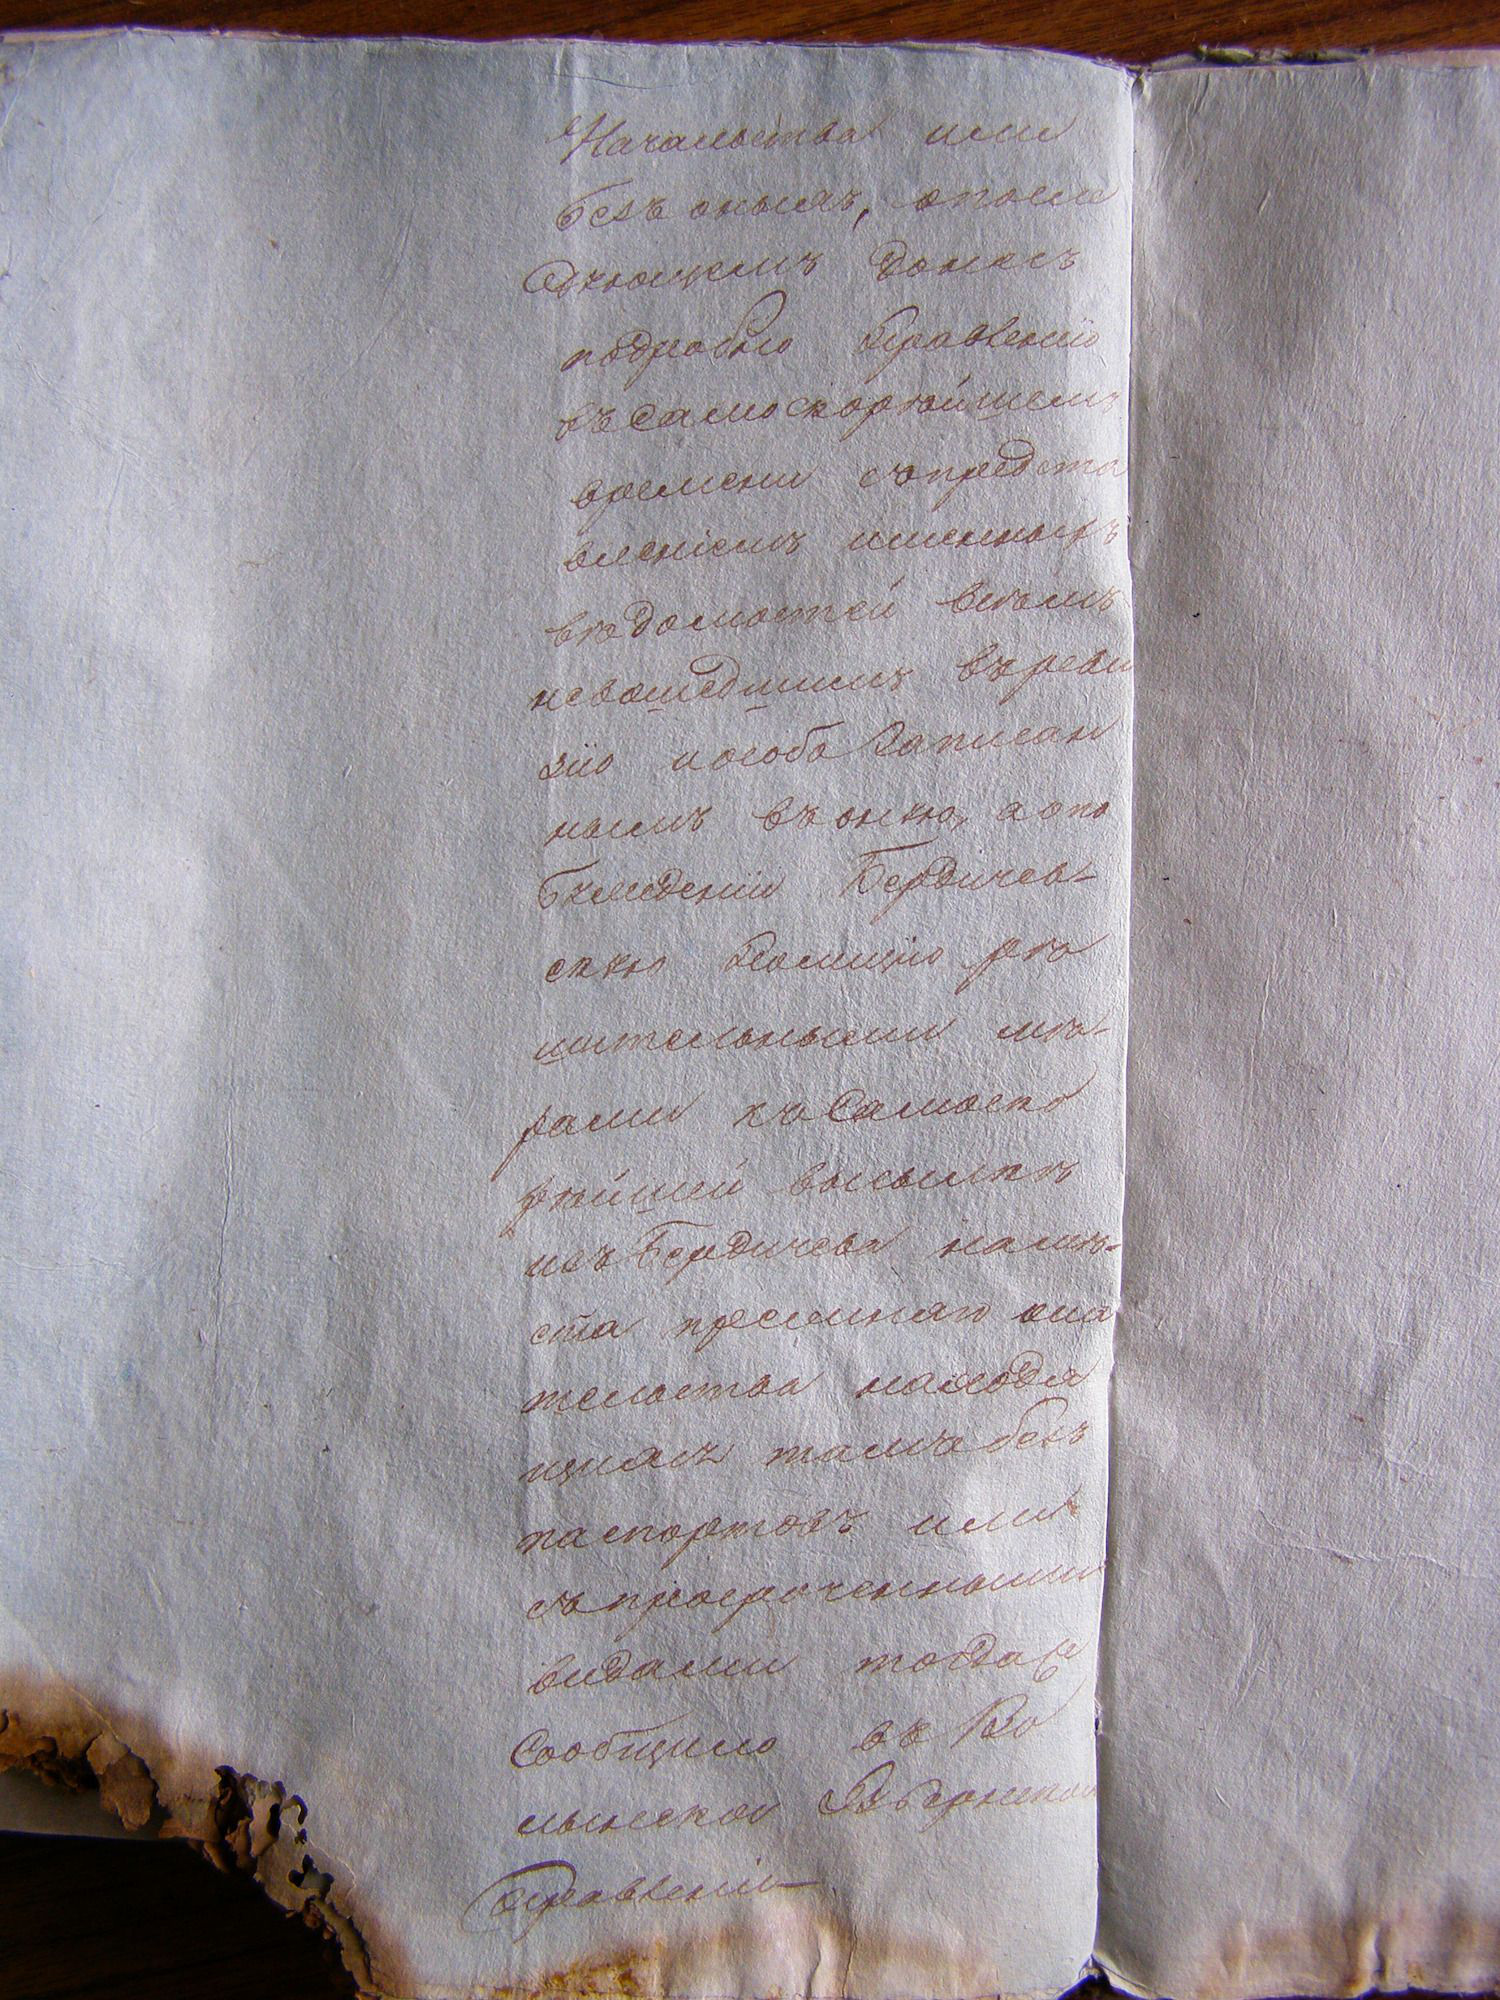 Начальства или
безъ оныхъ, опосле
дующемъ донесъ
подробно Правленію
въ самоскорѣйшемъ
времени съ предста
вленіемъ именныхъ
вѣдомостей всѣмъ
невошедшимъ въ реви
зію и особо записан
нымъ въ оную, а о по
бужденіи Бердичев-
скую Полицію рѣ
шительными мѣ-
рами къ самоско
рѣйшей высылкѣ
изъ Бердичева на мѣ-
ста прежняго оби
тельства находя
щихся тамъ безъ
паспортовъ или
съ просроченными
видами тогдаже
Сообщило въ Во
лынское Губернское
Правленіе